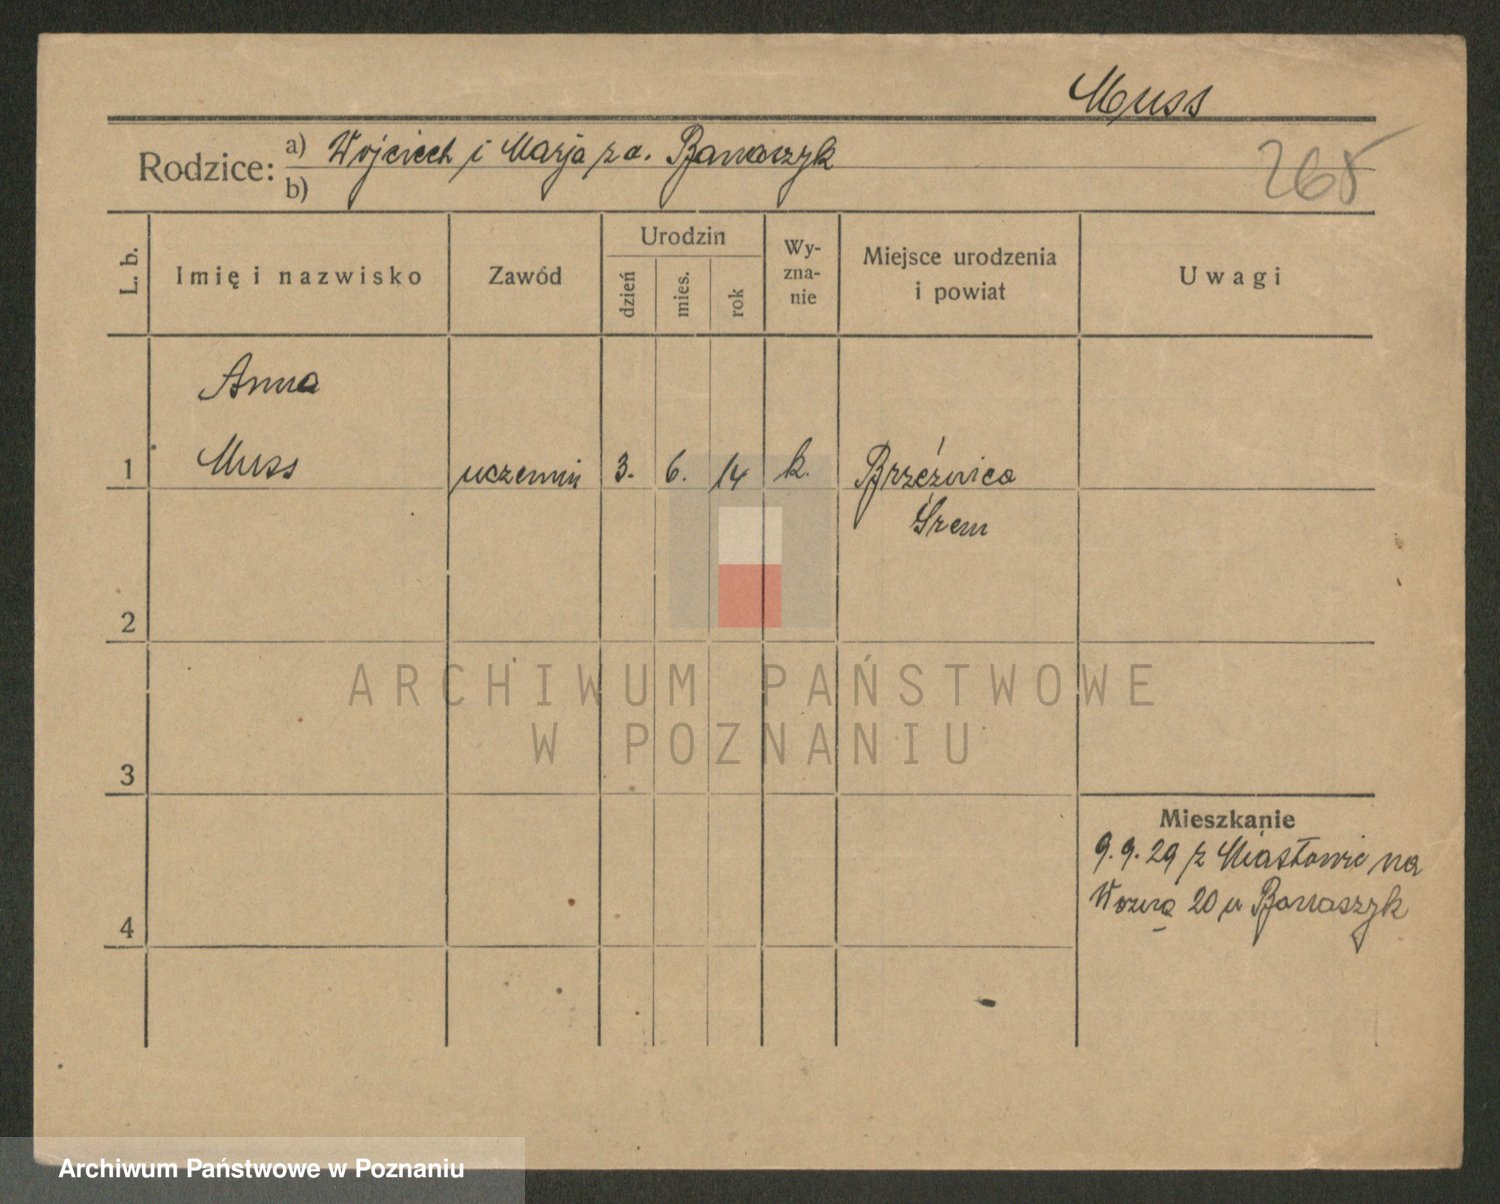 Muss
Rodzice: a) Wojciech i Marja z d. Banaszyk
b)
268
L. b.
Imię i nazwisko
Zawód
Urodzin
dzień
mies.
rok
Wy-
zna-
nie
Miejsce urodzenia
i powiat
Uwagi
Anna
1 Muss uczennic 3. 6. 14 k. Brzeźnica
Śrem
2
ARCHIWUM PAŃSTWOWE
W POZNANIU
3
Mieszkanie
9.9.29 z na
20 u Banaszyk
4
Archiwum Państwowe w Poznaniu